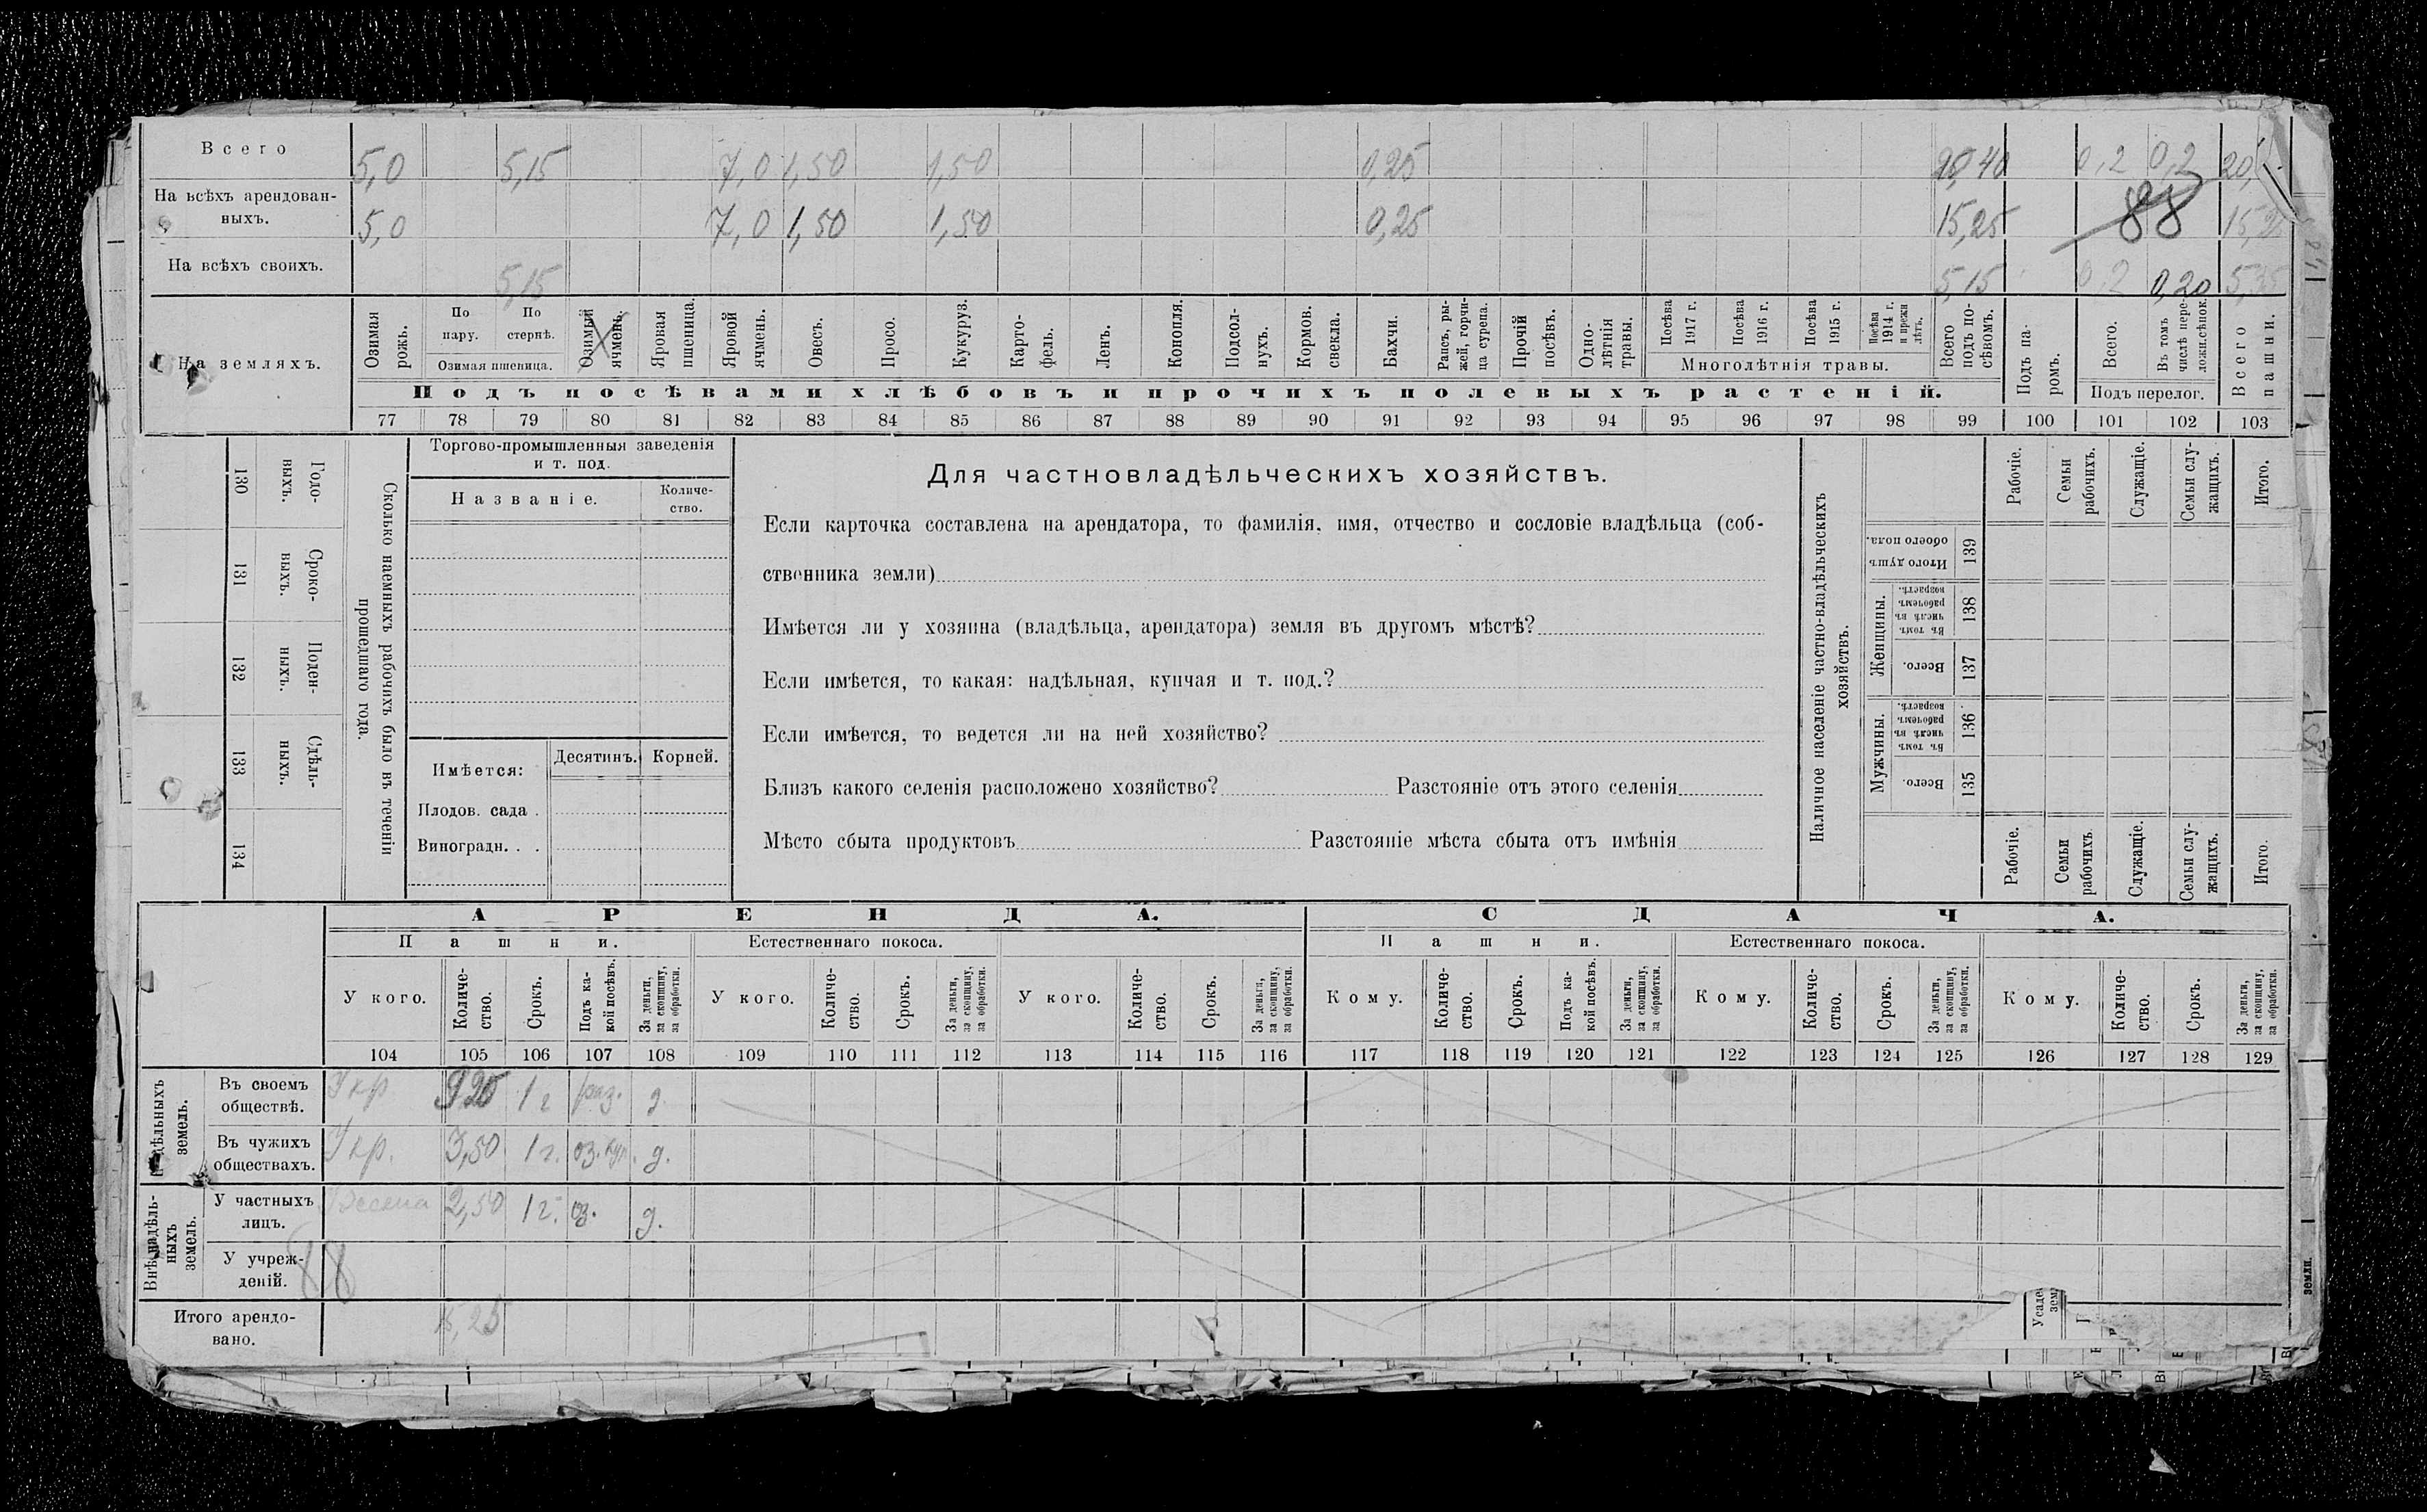 Всего 5,0 5,15 7,0 1,50 1,50 0,25 20,40 0,2 0,2 20,
На всѣхъ арендован-
ныхъ. 5,0 7,0 1,50 1,50 0,25 15,25 88 15,2
На всѣхъ своихъ. 5,15 5,15 0,2 0,20 5,35
На земляхъ.
Озимая рожь.
По пару.
По стернѣ.
Озимая пшеница.
Озимый ячмень.
Яровая пшеница.
Яровой ячмень.
Овесъ.
Просо.
Кукуруз.
Карто-
фель.
Ленъ.
Конопля.
Подсол-
нухъ.
Кормов.
свекла.
Бахчи.
Рапсъ, ры-
жей, горчи-
ца сурепа.
Прочій
посѣвъ.
Одно-
лѣтнія
травы.
Посѣва
1917 г.
Посѣва
1916 г.
Посѣва
1915 г.
Посѣва
1914 г.
и прежн
лѣтъ.
Многолѣтнія травы.
Всего
подъ по-
сѣвомъ.
Подъ па-
ромъ.
Всего.
Въ томъ
числѣ пере-
ложн.сѣнок.
Подъ перелог.
Всего
пашни.
Подъ посѣвами хлѣбовъ и прочихъ полевыхъ растеній.
77 78 79 80 81 82 83 84 85 86 87 88 89 90 91 92 93 94 95 96 97 98 99 100 101 102 103
130 Годо-
выхъ.
131 Сроко-
выхъ.
132 Поден-
ныхъ.
133 Сдѣль-
ныхъ.
134
Сколько наемныхъ рабочихъ было въ теченіи
прошедшаго года.
Торгово-промышленныя заведенія
и т. под.
Названіе.
Количе-
ство.
Имѣется:
Десятинъ. Корней.
Плодов. сада .
Виноградн. . .
Для частновладѣльческихъ хозяйствъ.
Если карточка составлена на арендатора, то фамилія, имя, отчество и сословіе владѣльца (соб-
ственника земли)
Имѣется ли у хозяина (владѣльца, арендатора) земля въ другомъ мѣстѣ?
Если имѣется, то какая: надѣльная, купчая и т. под.?
Если имѣется, то ведется ли на ней хозяйство?
Близъ какого селенія расположено хозяйство? Разстояніе отъ этого селенія
Мѣсто сбыта продуктовъ Разстояніе мѣста сбыта отъ имѣнія
Наличное населеніе частно-владѣльческихъ
хозяйствъ.
Рабочіе.
Семьи
рабочихъ.
Служащіе.
Семьи слу-
жащихъ.
Итого.
Итого душъ
обоего пола.
139
Женщины.
Въ томъ
числѣ въ
рабочемъ
возрастѣ.
138
Всего.
137
Мужчины.
Въ томъ
числѣ въ
рабочемъ
возрастѣ.
136
Всего.
135
Рабочіе.
Семьи
рабочихъ
Служащіе.
Семьи слу-
жащихъ.
Итого.
АРЕНДА. СДАЧА.
Пашни. Естественнаго покоса. Пашни. Естественнаго покоса.
У кого.
Количе-
ство.
Срокъ.
Подъ ка-
кой посѣвъ.
За деньги,
за скопщину,
за обработки.
У кого.
Количе-
ство.
Срокъ.
За деньги,
за скопщину,
за обработки.
У кого.
Количе-
ство.
Срокъ.
За деньги,
за скопщину,
за обработки.
Кому.
Количе-
ство.
Срокъ.
Подъ ка-
кой посѣвъ.
За деньги,
за скопщину,
за обработки.
Кому.
Количе-
ство.
Срокъ.
За деньги,
за скопщину,
за обработки.
Кому.
Количе-
ство.
Срокъ.
За деньги,
за скопщину,
за обработки.
104 105 106 107 108 109 110 111 112 113 114 115 116 117 118 119 120 121 122 123 124 125 126 127 128 129
земель.
Въ своемъ
обществѣ. У кр. 9,25 1 г раз. д.
Въ чужихъ
обществахъ. У кр. 3,50 1 г. оз. д.
Внѣнадѣль-
ныхъ
земель.
У частныхъ
лицъ. 2,50 1 г. оз. д.
У учреж-
деній. 88
Итого арендо-
вано. 15,25
земли.